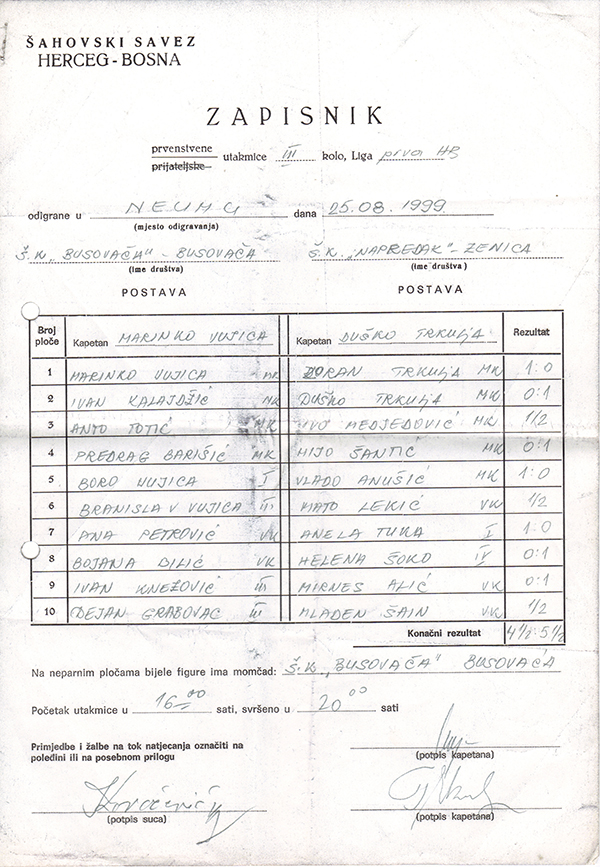 ŠAHOVSKI SAVEZ
HERCEG-BOSNA
ZAPISNIK
prvenstvene
prijateljske
utakmice III kolo, Liga prva HB
odigrane u NEUMU dana 25.08.1999
(mjesto odigravanja)
Š.K. „BUSOVAČA" - BUSOVAČA Š.K. „NAPREDAK"-ZENICA
(ime društva) (ime društva)
POSTAVA POSTAVA
Broj ploče Kapetan MARINKO VUJICA Kapetan DUŠKO TRKULJA Rezultat
1 MARINKO VUJICA MK ZORAN TRKULJA MK 1:0
2 IVAN KALAJDŽIĆ MK DUŠKO TRKULJA MK 0:1
3 ANTO TOTIĆ MK IVO MEDJEDOVIĆ MK 1/2
4 PREDRAG BARIŠIĆ MK MIJO ŠANTIĆ MK 0:1
5 BORO VUJICA I VLADO ANUŠIĆ MK 1:0
6 BRANISLAV VUJICA III MATO LEKIĆ VK 1/2
7 ANA PETROVIĆ VK ANELA TUKA I 1:0
8 BOJANA BILIĆ VK HELENA ŠOKO IV 0:1
9 IVAN KNEZOVIĆ III MIRNES ALIĆ VK 0:1
10 DEJAN GRABOVAC III MLADEN ŠAIN VK 1/2
Konačni rezultat 4 1/2:5 1/2
Na neparnim pločama bijele figure ima momčad: Š.K. „BUSOVAČA" BUSOVAČA
Početak utakmice u 16 00 sati, svršeno u 20 00 sati
Primjedbe i žalbe na tok natjecanja označiti na
poleđini ili na posebnom prilogu
(potpis kapetana)
(potpis suca) (potpis kapetana)